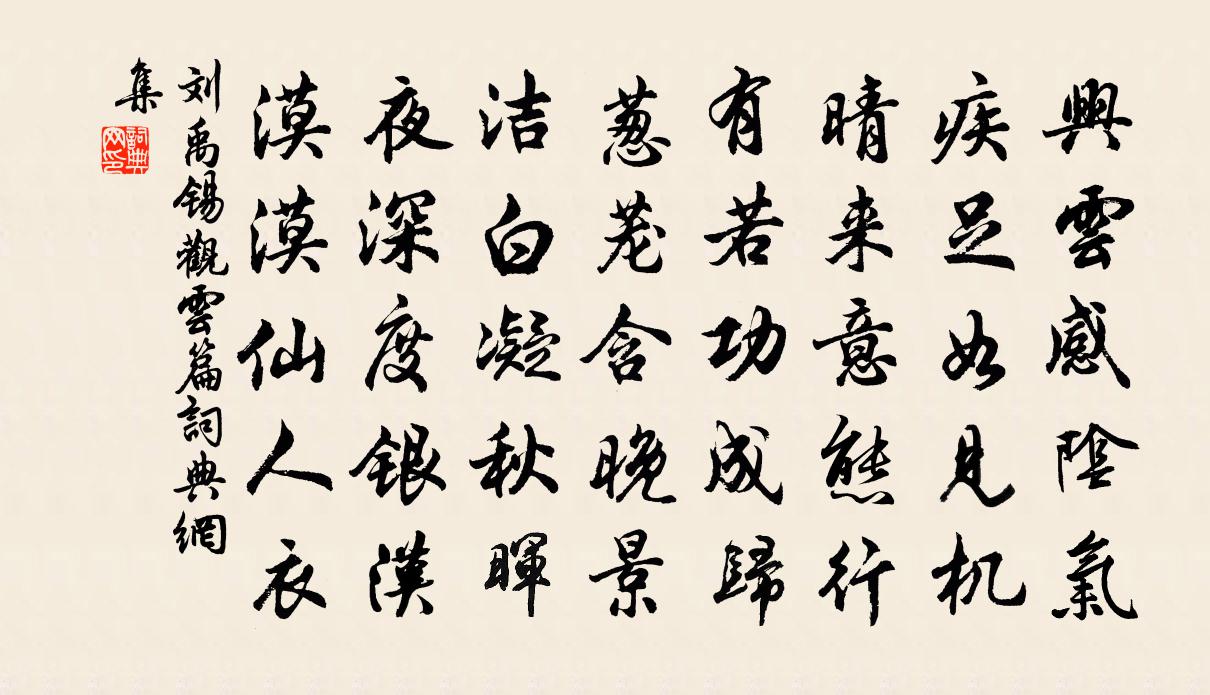 興雲感陰氣
疾足如見机
晴来意態行
有若功成歸
葱茏含晚景
洁白凝秋暉
夜深度銀漢
漠漠仙人衣
刘禹錫觀雲篇詞典網
集
詞典网印